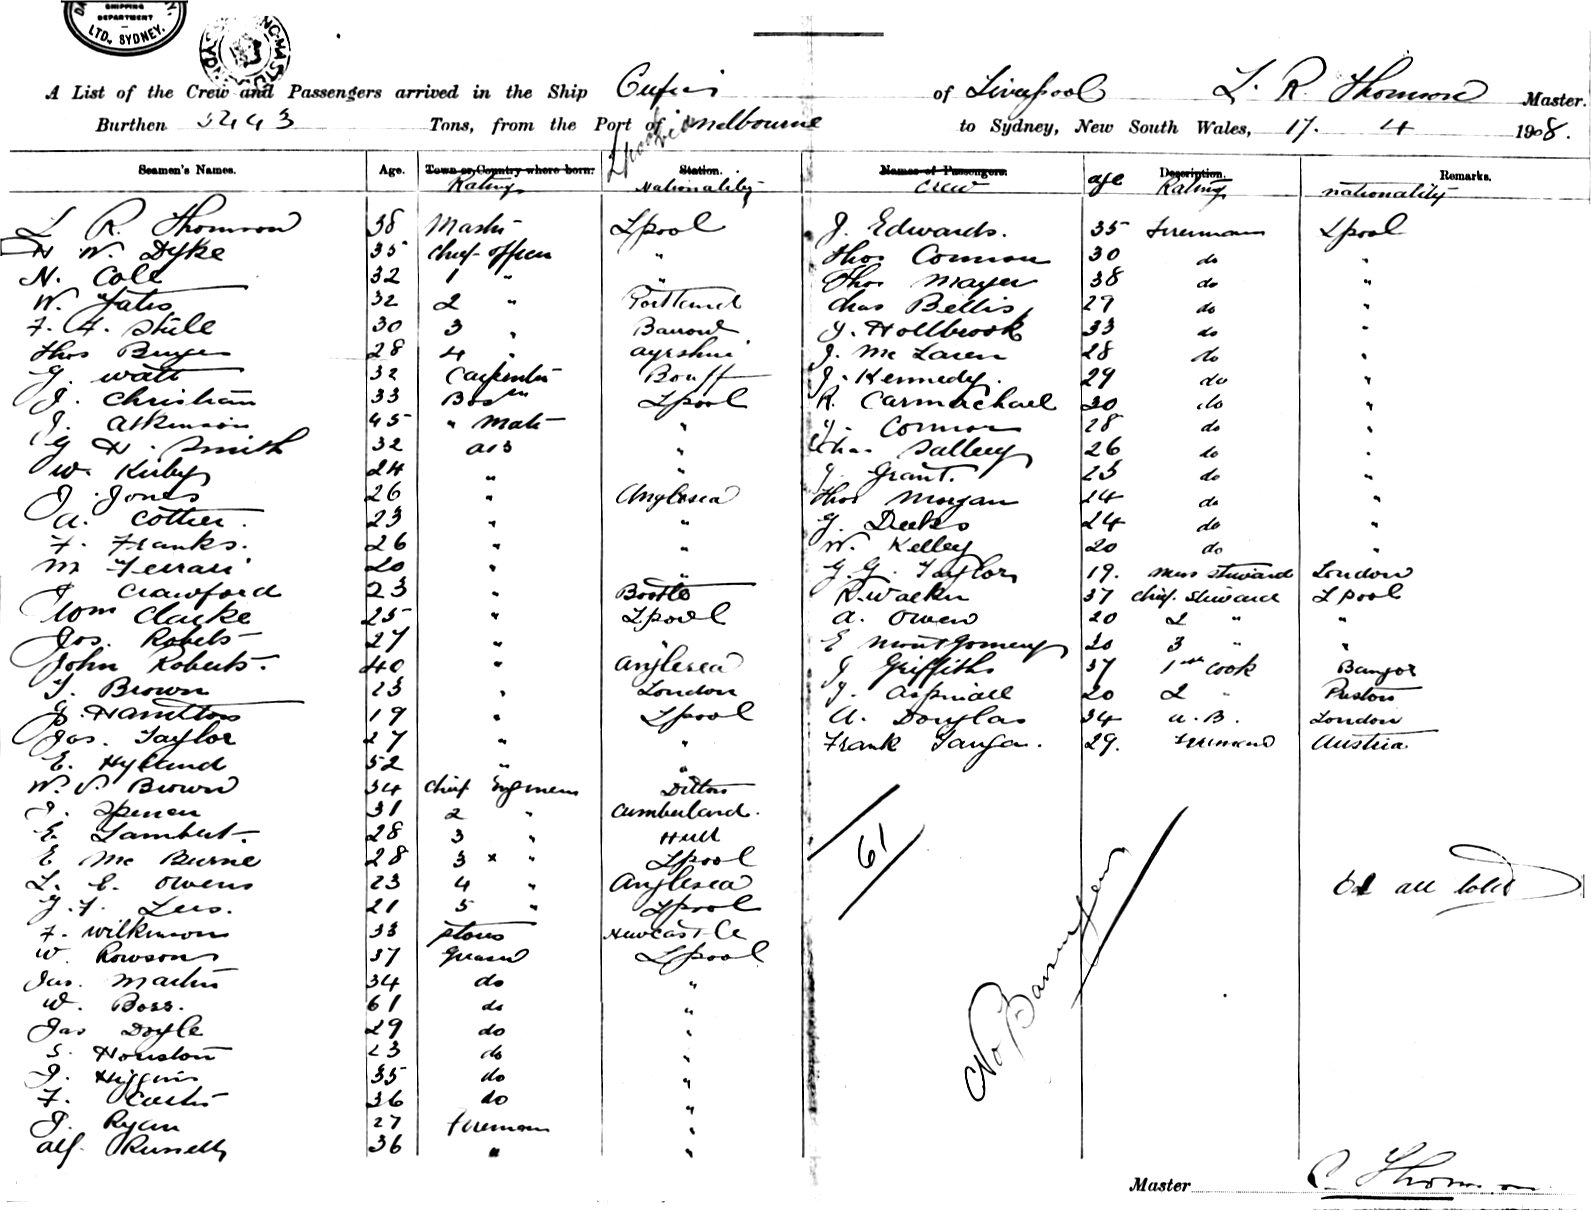 SHIPPING
DEPARTMENT
LTD., SYDNEY.
A List of the Crew and Passengers arrived in the Ship Cufic of Liverpool L. R. Thomson Master.
Burthen 5443 Tons, from the Port of Melbourne to Sydney, New South Wales, 17. 4 1908.
Seamen's Names. Age. Town or Country where born: Station. Names of Passengers. Description. Remarks.
Rating Nationality Crew age Rating nationality
L R. Thomson 38 Master Lpool J. Edwards. 35 Fireman Lpool
H W. Dyke 35 Chief officer " Thos Connor 30 do "
N. Cole 32 1 " " Thos Mayer 38 do "
W. Yates 32 2 " Portland Chas Bellis 29 do "
F. F. Stile 30 3 " Barrow J. Hollbrook 33 do "
Thos 28 4 " ayrshire J. McLaren 28 do "
J. Watt 32 Carpenter J. Kennedy. 29 do "
J. Christian 33 Bosn Lpool R. Carmichael 30 do "
J. Atkinson 45 " Mate " J. Connor 28 do "
G H. Smith 32 " Chas 26 do "
W. Kirby 24 " " J. Grant. 25 do "
J. Jones 26 " Anglesea Thos Morgan 24 do "
A. Cottier. 23 " " J. Deeks 24 do "
F. Franks. 26 " " W. Kelley 20 do "
M Ferrari 20 " " G. G. Taylor 19. Mess Steward London
J Crawford 23 " Bootle R. Walker 37 Chief Steward Lpool
Wm Clarke 25 " Lpool A. Owen 20 2 " "
Jos. Roberts 27 " " E Montgomery 20 3 " "
John Roberts. 40 " Anglesea J Griffiths 37 1st Cook Bangor
T. Brown 23 " London J. Aspinall 20 2 " Preston
J. Hamilton 19 " Lpool A. Douglas 34 A.B. London
Jas. Taylor 27 " " Frank 29. Fireman Austria
E. Hyland 52 " "
W. Brown 34 Chief Engineer Ditton
J. Spencer 31 2 " Cumberland.
E. Lambert. 28 3 " Hull
E McBurne 28 3 x " Lpool
L. E. Owens 23 4 " Anglesea
21 5 " Lpool
F. Wilkinson 33 Stores Newcastle
W. Rowson 37 Greaser Lpool
Jas. Martin 34 do "
W. Boss. 61 do "
Jas Doyle 29 do "
S. Houston 23 do "
J. Higgins 35 do "
F. 36 do "
J. Ryan 27 Fireman "
Alf. Russell 36 " "
61
all told
No Passengers
Master R Thomson